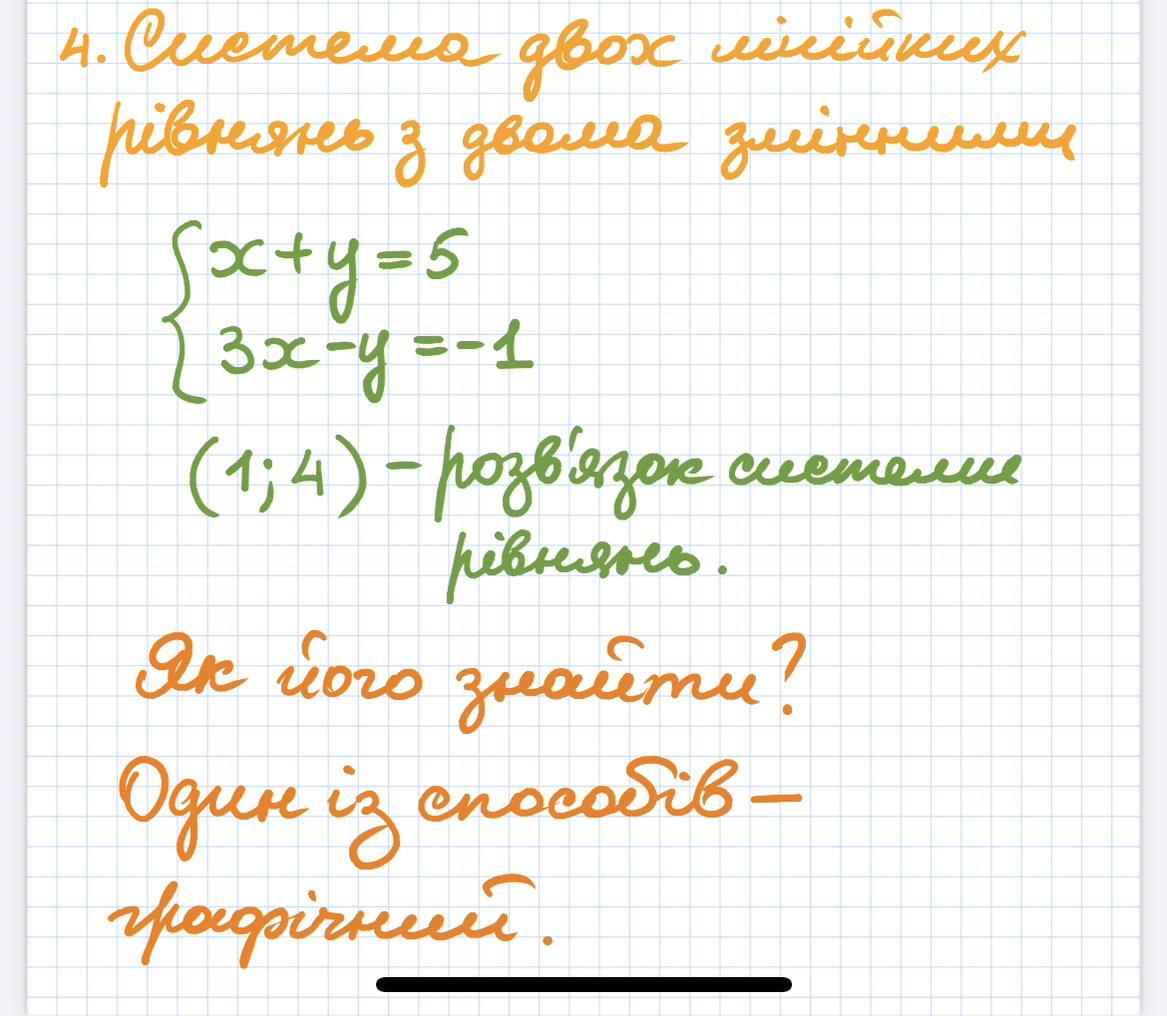 4. Система двох лінійних
рівнянь з двома змінними
x+y=5
3x-y=-1
(1;4) - розв'язок системи
рівнянь.
Як його знайти?
Один із способів —
графічний.